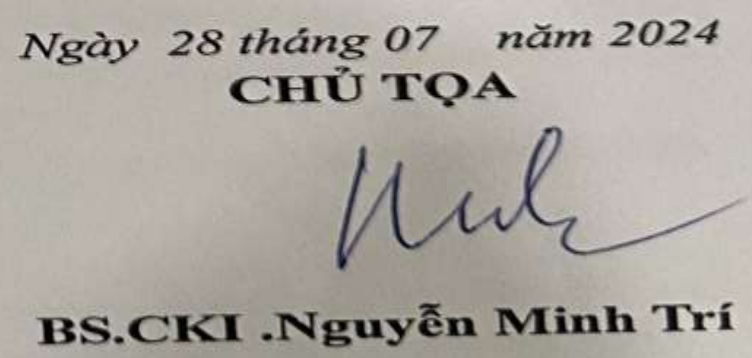 Ngày 28 tháng 07 năm 2024
CHỦ TỌA
BS.CKI .Nguyễn Minh Trí